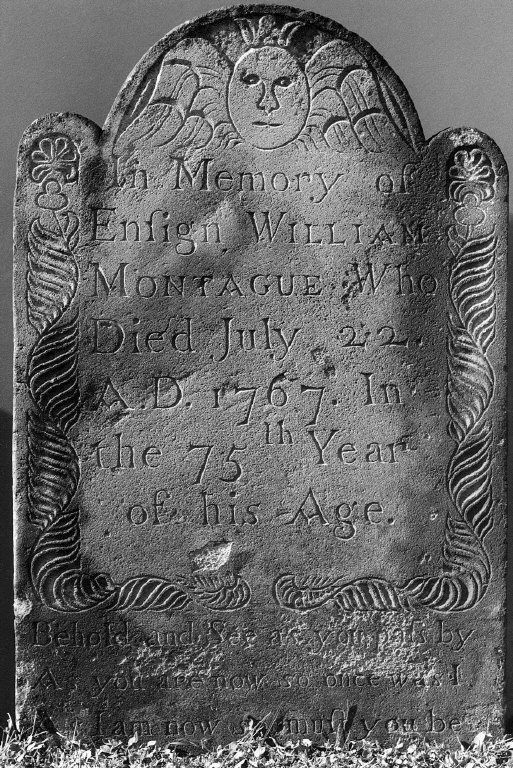 In Memory of
Enſign WILLIAM
MONTAGUE Who
Died July 22.
A.D. 1767. In
the 75th Year
of his Age.
Behold and See as you paſs by
As you are now so once was I
As I am now so muſt you be